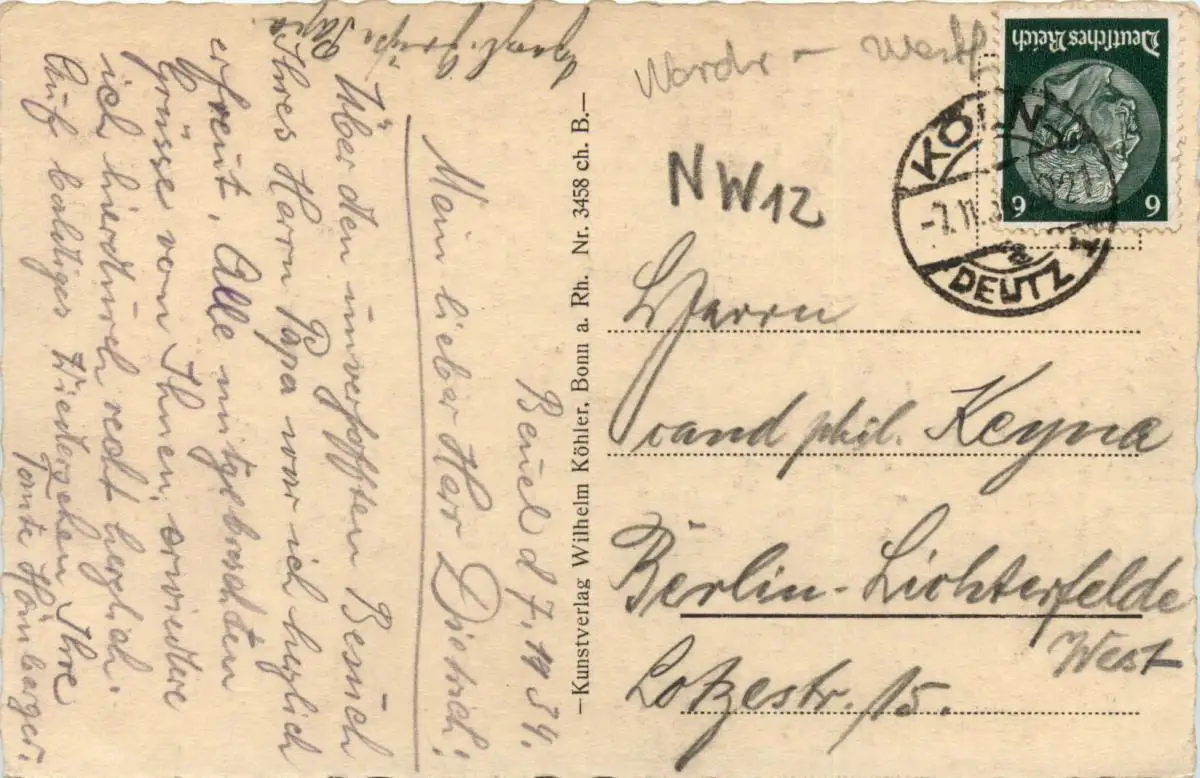 Beuel d 7.11 34.
Mein lieber Herr Dietrich!
Über den unverhofften Besuch
Ihres Herrn Papa war ich herzlich
erfreut, Alle mitgebrachten
Grüsse von Ihnen, erwiedere
ich hierdurch recht herzlich.
Auf baldiges Wiedersehen Ihre
Tante Hönberger.
Herzl. Grüße Papa
—Kunstverlag Wilhelm Köhler, Bonn a. Rh. Nr. 3458 ch. B.—
West
NW12
Deutsches Reich
6 6
KÖLN
-7.11.3
DEUTZ 1
a
Herrn
cand phil. Keyna
Berlin-Lichterfelde
West
Lotzestr. 15.